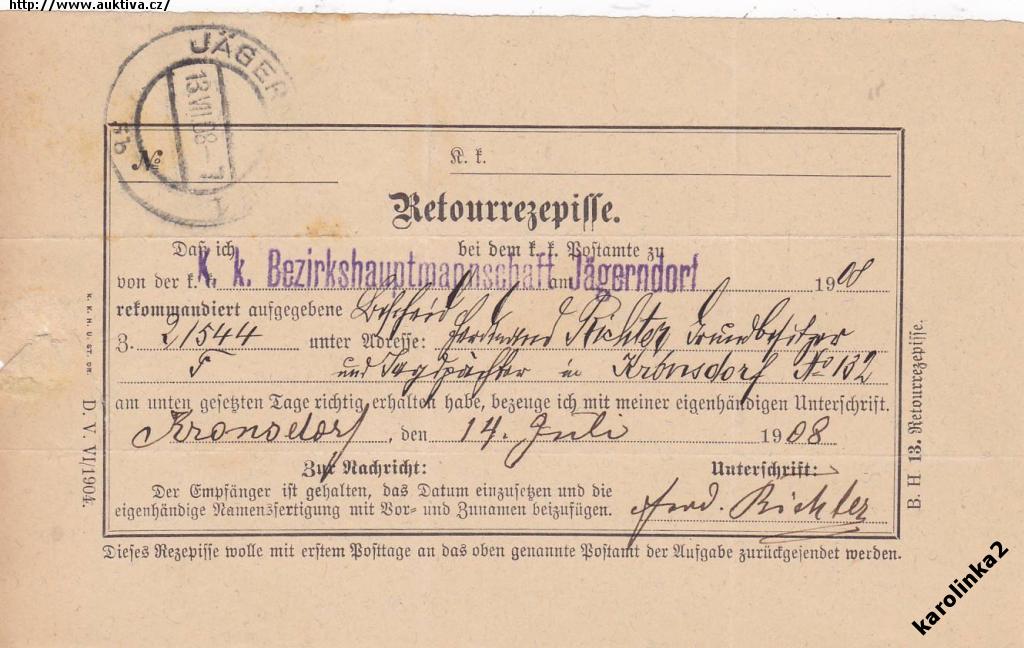 http://www.auktiva.cz/
JÄGER
13.VII.08-7
5b
No
K. k.
Retourrezepisse.
Daß ich bei dem k. k. Postamte zu
K. k. Bezirkshauptmannschaft Jägerndorf
von der k. k. am 1908
rekommandiert aufgegebene Bescheid
3. 21544 unter Adresse: Ferdinand Richter Grundbesitzer
F und Jagdpächter in Kronsdorf No 132
am unten gesetzten Tage richtig erhalten habe, bezeuge ich mit meiner eigenhändigen Unterschrift.
Kronsdorf, den 14. Juli 1908
Zur Nachricht: Unterschrift:
Der Empfänger ist gehalten, das Datum einzusetzen und die
eigenhändige Namensfertigung mit Vor- und Zunamen beizufügen.
Ferd. Richter
Dieses Rezepisse wolle mit erstem Posttage an das oben genannte Postamt der Aufgabe zurückgesendet werden.
K. K. H. U. ST. DR. D. V. VI/1904.
B. H 13. Retourrezepisse.
karolinka2